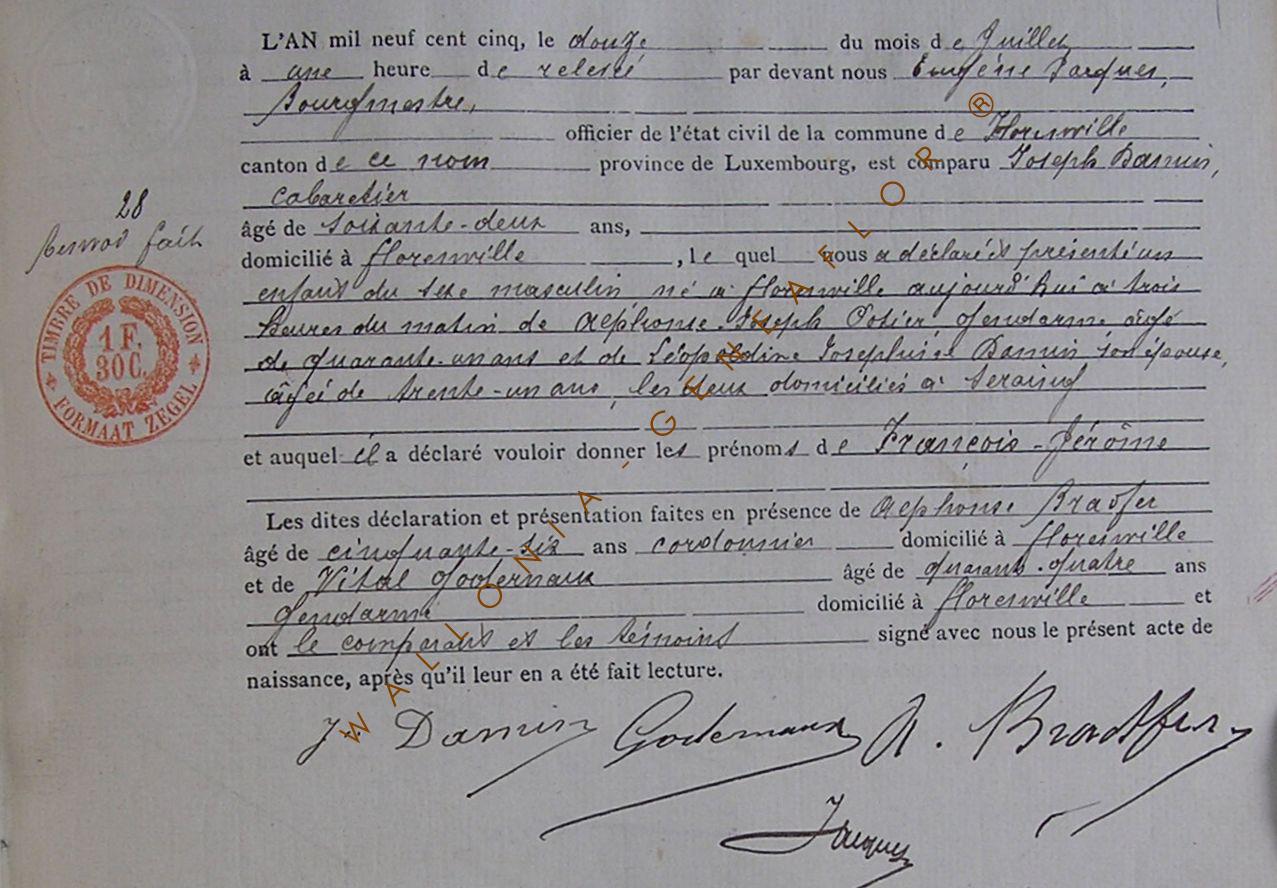 L'AN mil neuf cent cinq, le douze du mois de Juillet
à une heure de relevé par devant nous Eugène Jacques,
Bourgmestre,
officier de l'état civil de la commune de Florenville
canton de ce nom province de Luxembourg, est comparu Joseph Damin,
cabaretier
âgé de soixante-deux ans,
domicilié à Florenville, le quel nous a déclaré et présenté un
enfant du sexe masculin né à Florenville aujourd'hui à trois
heures du matin de Alphonse-Joseph Gendarme âgé
de quarante-un ans et de Léopoldine Josephine Damin son épouse,
âgée de trente-un ans, les deux domiciliés à Seraing
et auquel il a déclaré vouloir donner les prénoms de François-Jérôme
Les dites déclaration et présentation faites en présence de Alphonse Bradfer
âgé de cinquante-six ans cordonnier domicilié à Florenville
et de Vital Godernaux âgé de quarante-quatre ans
gendarme domicilié à Florenville et
ont le comparant et les témoins signé avec nous le présent acte de
naissance, après qu'il leur en a été fait lecture.
J. Damin Godernaux A. Bradfer
Jacques
28
fait
TIMBRE DE DIMENSION
1 F.
30 C.
FORMAAT ZEGEL
WALLONIA - GENEALOR ®